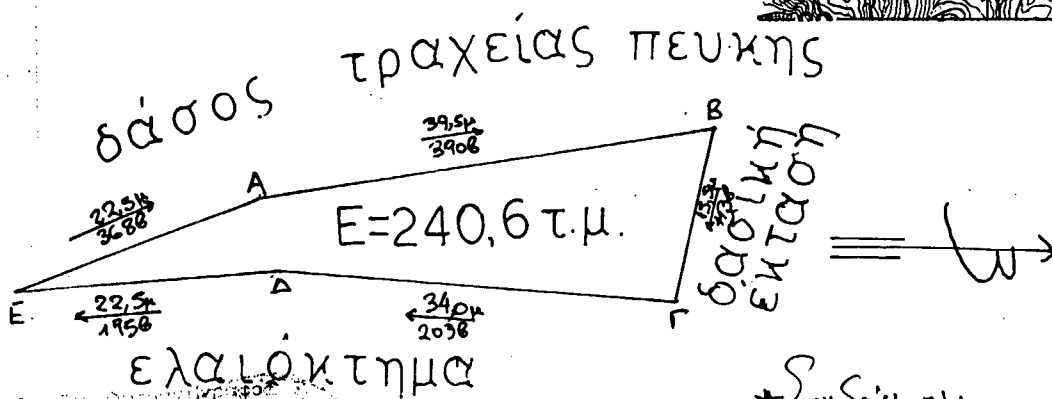 δάσος τραχείας πευκης
39,5μ
390β
Β
Α
22,5μ
368β
Ε=240,6 τ.μ.
δασική
έκταση
Ε
22,5μ
195β
Δ
34,0μ
203β
Γ
ελαιόκτημα